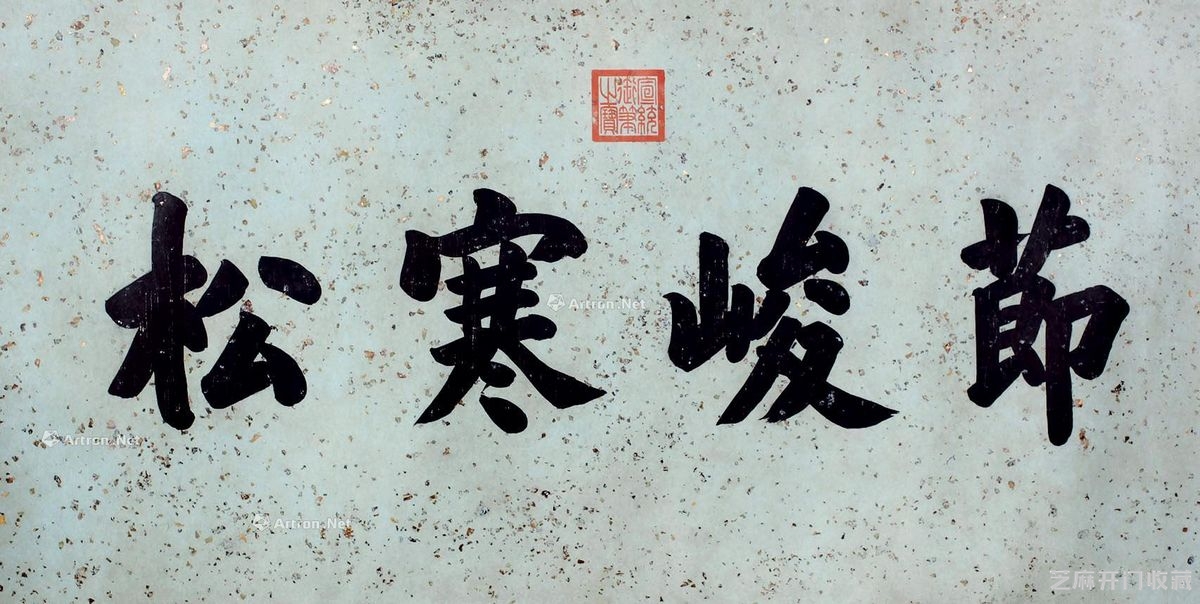 宣統
御筆
之寶
節峻寒松
Artron.Net
Artron.Net
Artron.Net
芝麻开门收藏